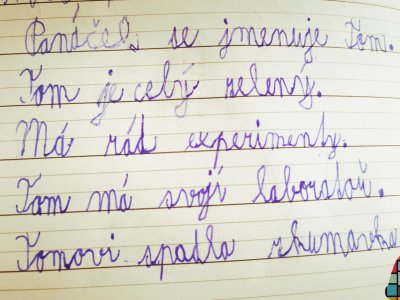 Panáček se jmenuje Tom.
Tom je celý zelený.
Má rád experimenty.
Tom má svojí laboratoř.
Tomovi spadla zkumavka